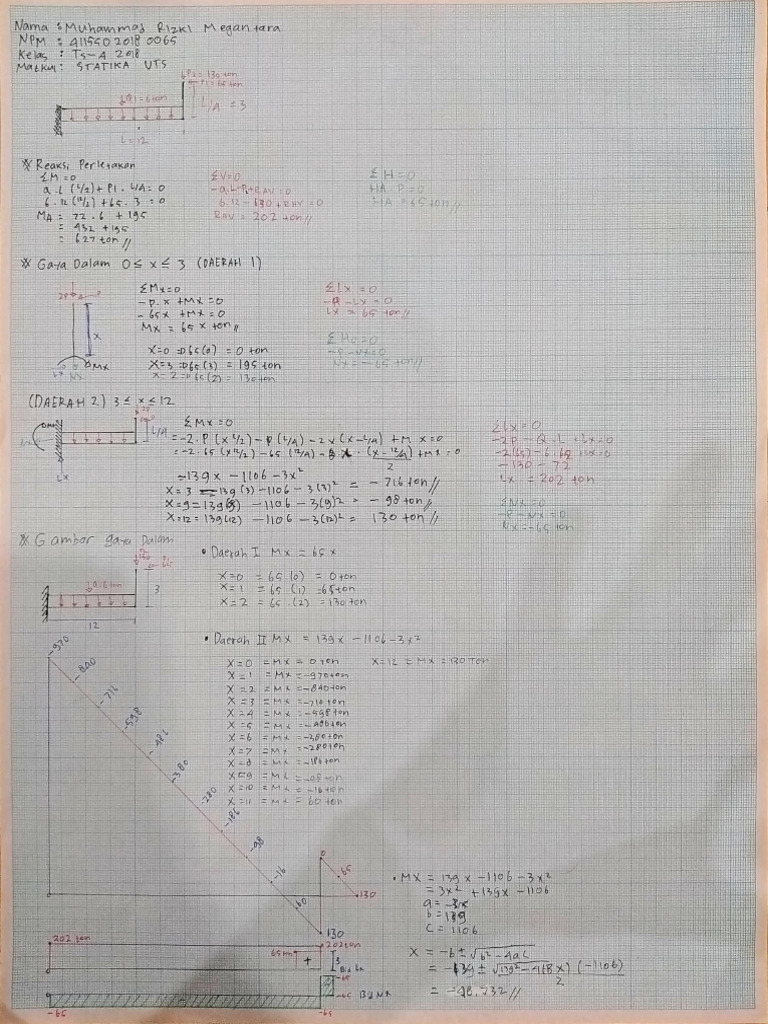 Nama : Muhammad Rizki Megantara
NPM : 41155020180065
Kelas : TS-A 2018
Matkul : STATIKA UTS
P2 = 130 ton
P1 = 65 ton
Q1 = 6 ton
L/4 = 3
L = 12
* Reaksi Perletakan
ΣM = 0
Q.L (L/2) + P1 . L/4 = 0
6.12 (12/2) + 65.3 = 0
MA = 72.6 + 195
= 432 + 195
= 627 ton //
ΣV = 0
RAV = 202 ton //
ΣH = 0
HA P = 0
HA = 65 ton //
* Gaya Dalam 0 ≤ x ≤ 3 (DAERAH 1)
x
MX
ΣMx = 0
-P.x + Mx = 0
-65x + Mx = 0
Mx = 65 x ton //
X=0 => 65(0) = 0 ton
X=3 => 65(3) = 195 ton
X=2 => 65(2) = 130 ton
ΣLx = 0
Lx = 65 ton //
Nx = -65 ton //
(DAERAH 2) 3 ≤ x ≤ 12
L/4
Lx
ΣMx = 0
= -2.P (x L/2) - P (L/4) - 2x (x - L/4) + M x = 0
= 139x - 1106 - 3x²
X = 3 = 139(3) - 1106 - 3(3)² = -716 ton //
X = 9 = 139(9) - 1106 - 3(9)² = -98 ton //
X = 12 = 139(12) - 1106 - 3(12)² = 130 ton //
ΣLx = 0
-2P - Q.L + Lx = 0
-130 - 72
Lx = 202 ton
ΣNx = 0
-P - Nx = 0
Nx = -65 ton
* Gambar gaya Dalam
Q1 6 ton
3
12
• Daerah I Mx = 65 x
X=0 = 65 (0) = 0 ton
X=1 = 65 (1) = 65 ton
X=2 = 65.(2) = 130 ton
• Daerah II Mx = 139x - 1106 - 3x²
X=0 = Mx = 0 ton
X=12 = Mx = 130 Ton
X=1 = Mx = -970 ton
X=2 = Mx = -840 ton
X=3 = Mx = -716 ton
X=4 = Mx = -598 ton
X=5 = Mx = -486 ton
X=6 = Mx = -380 ton
X=7 = Mx = -280 ton
X=8 = Mx = -186 ton
X=9 = Mx = -98 ton
X=10 = Mx = -16 ton
X=11 = Mx = 60 ton
-970
-840
-716
-598
-486
-380
-280
-186
-98
-16
60
0
65
130
130
• MX = 139x - 1106 - 3x²
= 3x² + 139x - 1106
b = 139
c = 1106
X = -b ± √b² - 4ac
= -98.732 //
202 ton
202 ton
+
3
-65
-65
-65
-65